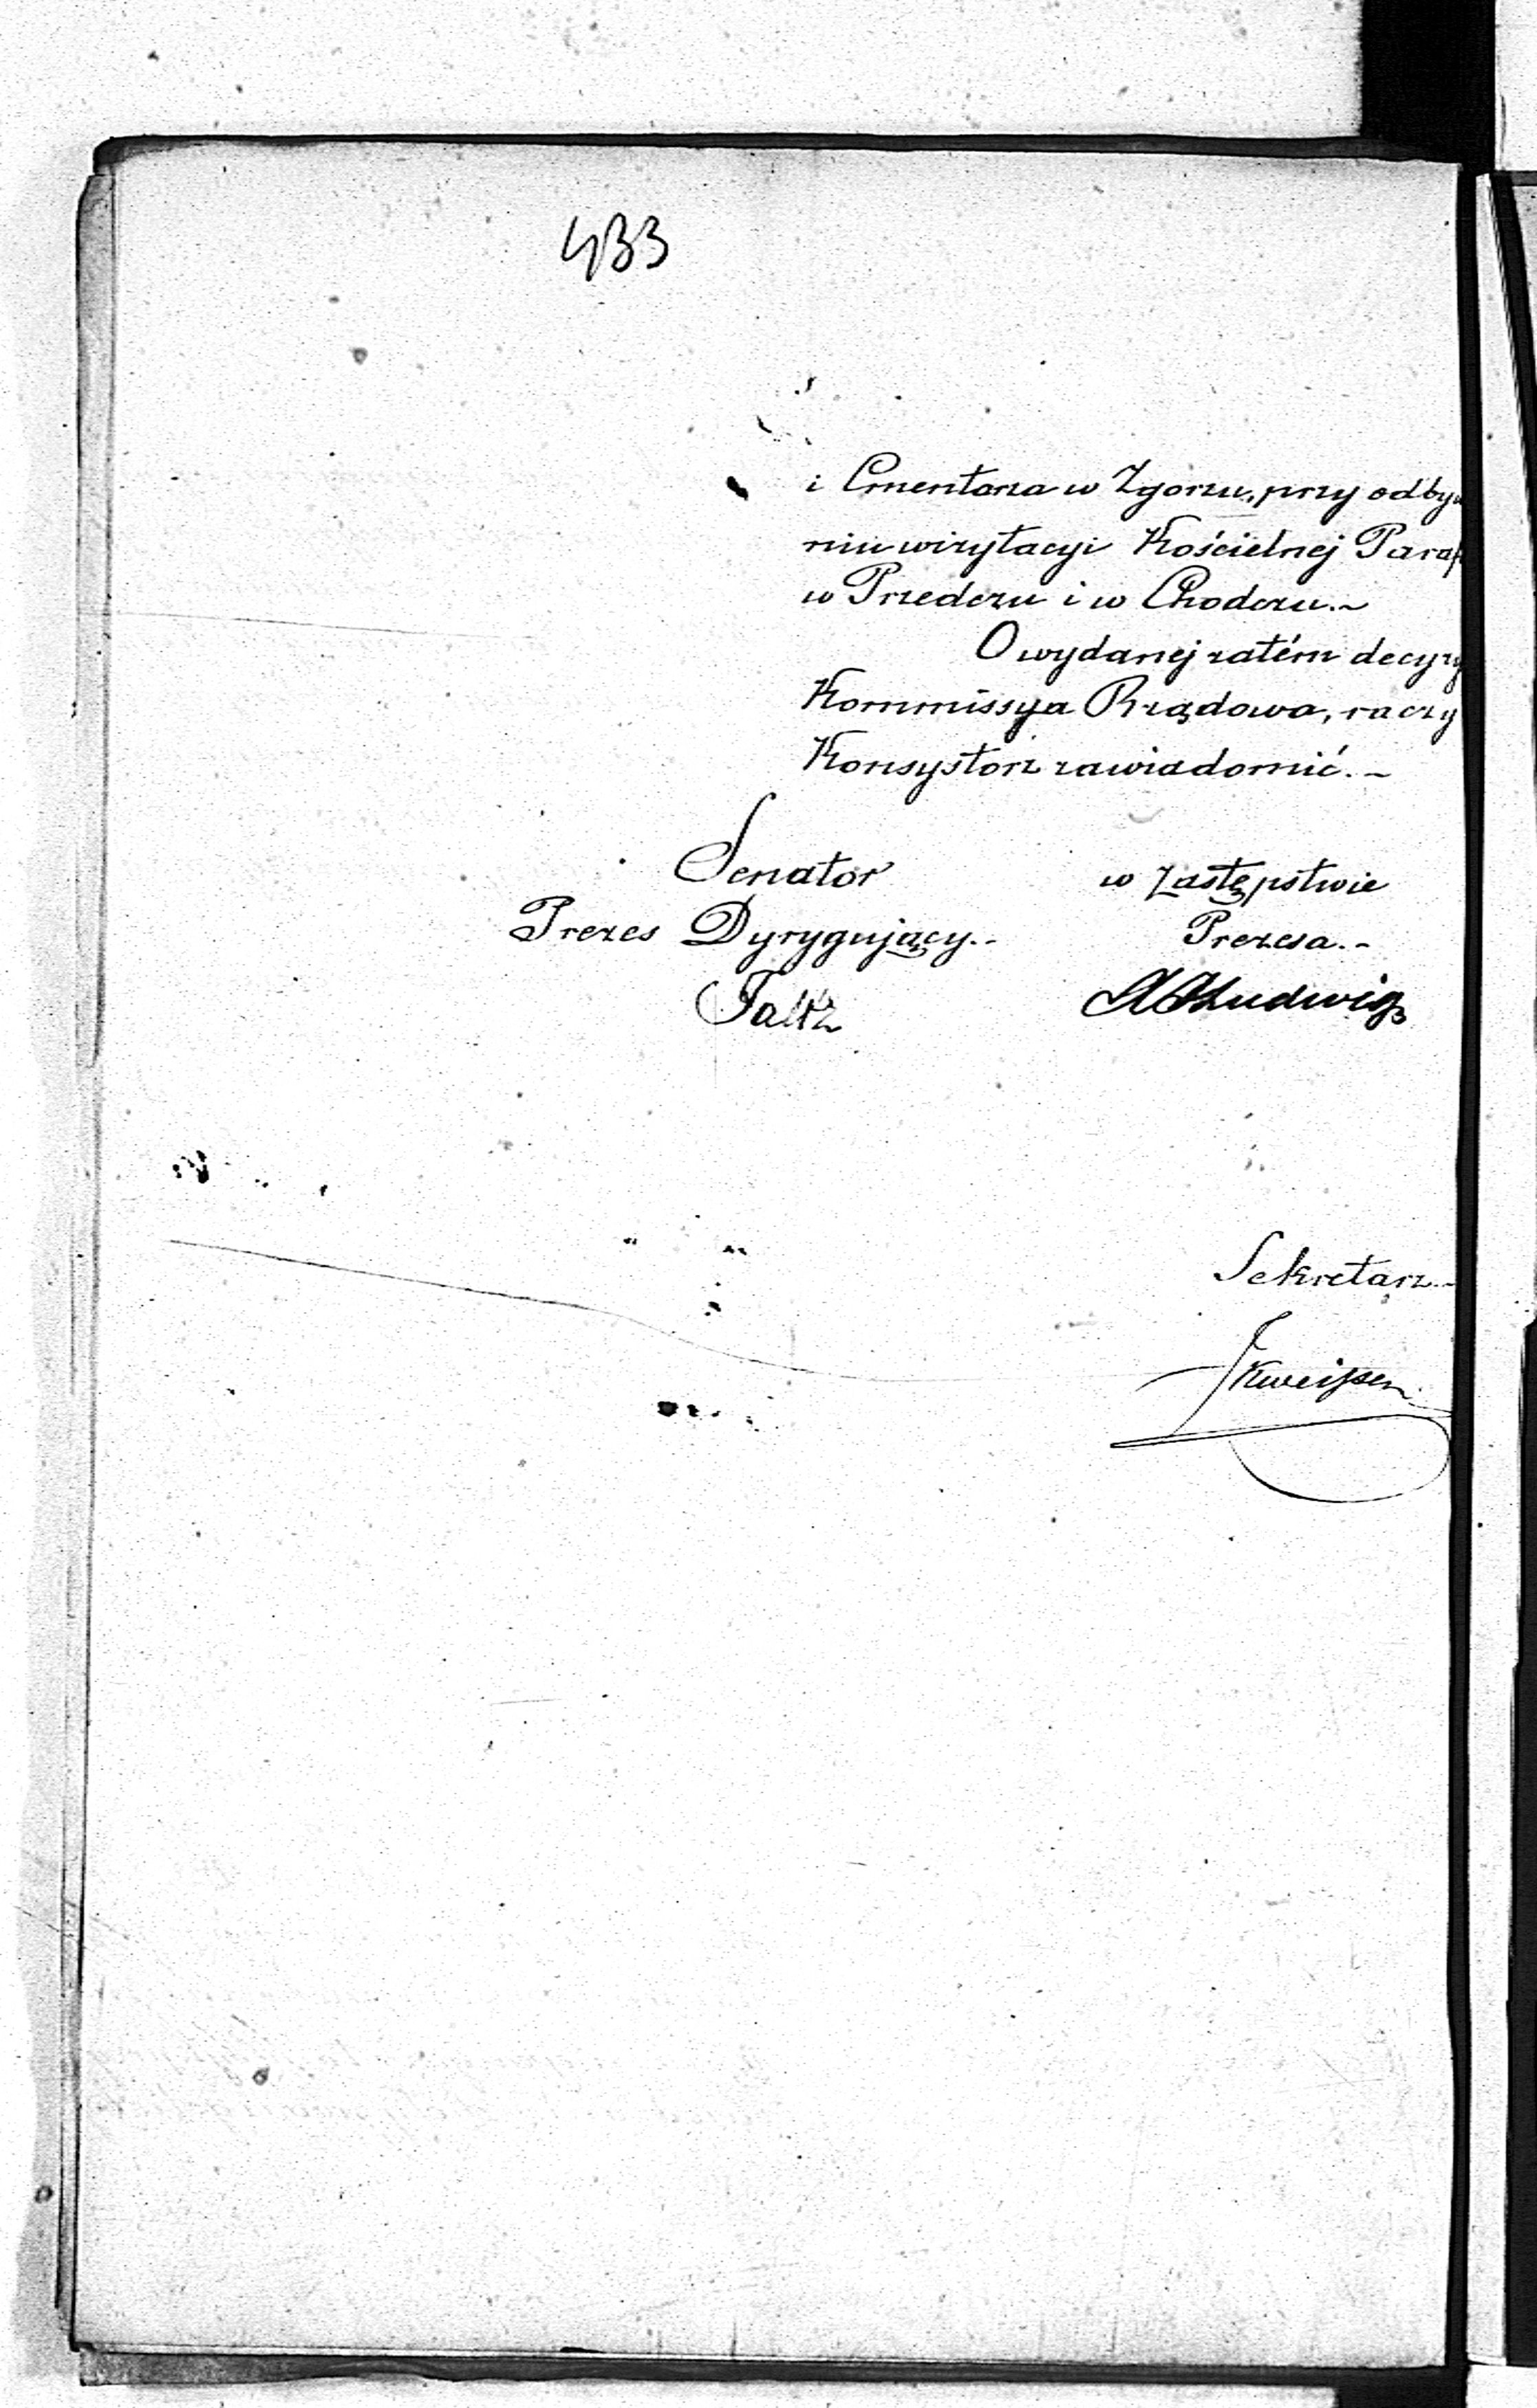 433
i Cmentarza w Zgorzu, przy odby
niu wizytacyi Kościelnej Paraf
w Przedczu i w Chodczu.~
O wydanej zatém decyzy
Kommissya Rządowa, raczy
Konsystorz zawiadomić.~
Senator
Prezes Dyrygujący.-
w Zastępstwie
Prezesa.-
Ludwig
Sekretarz.-